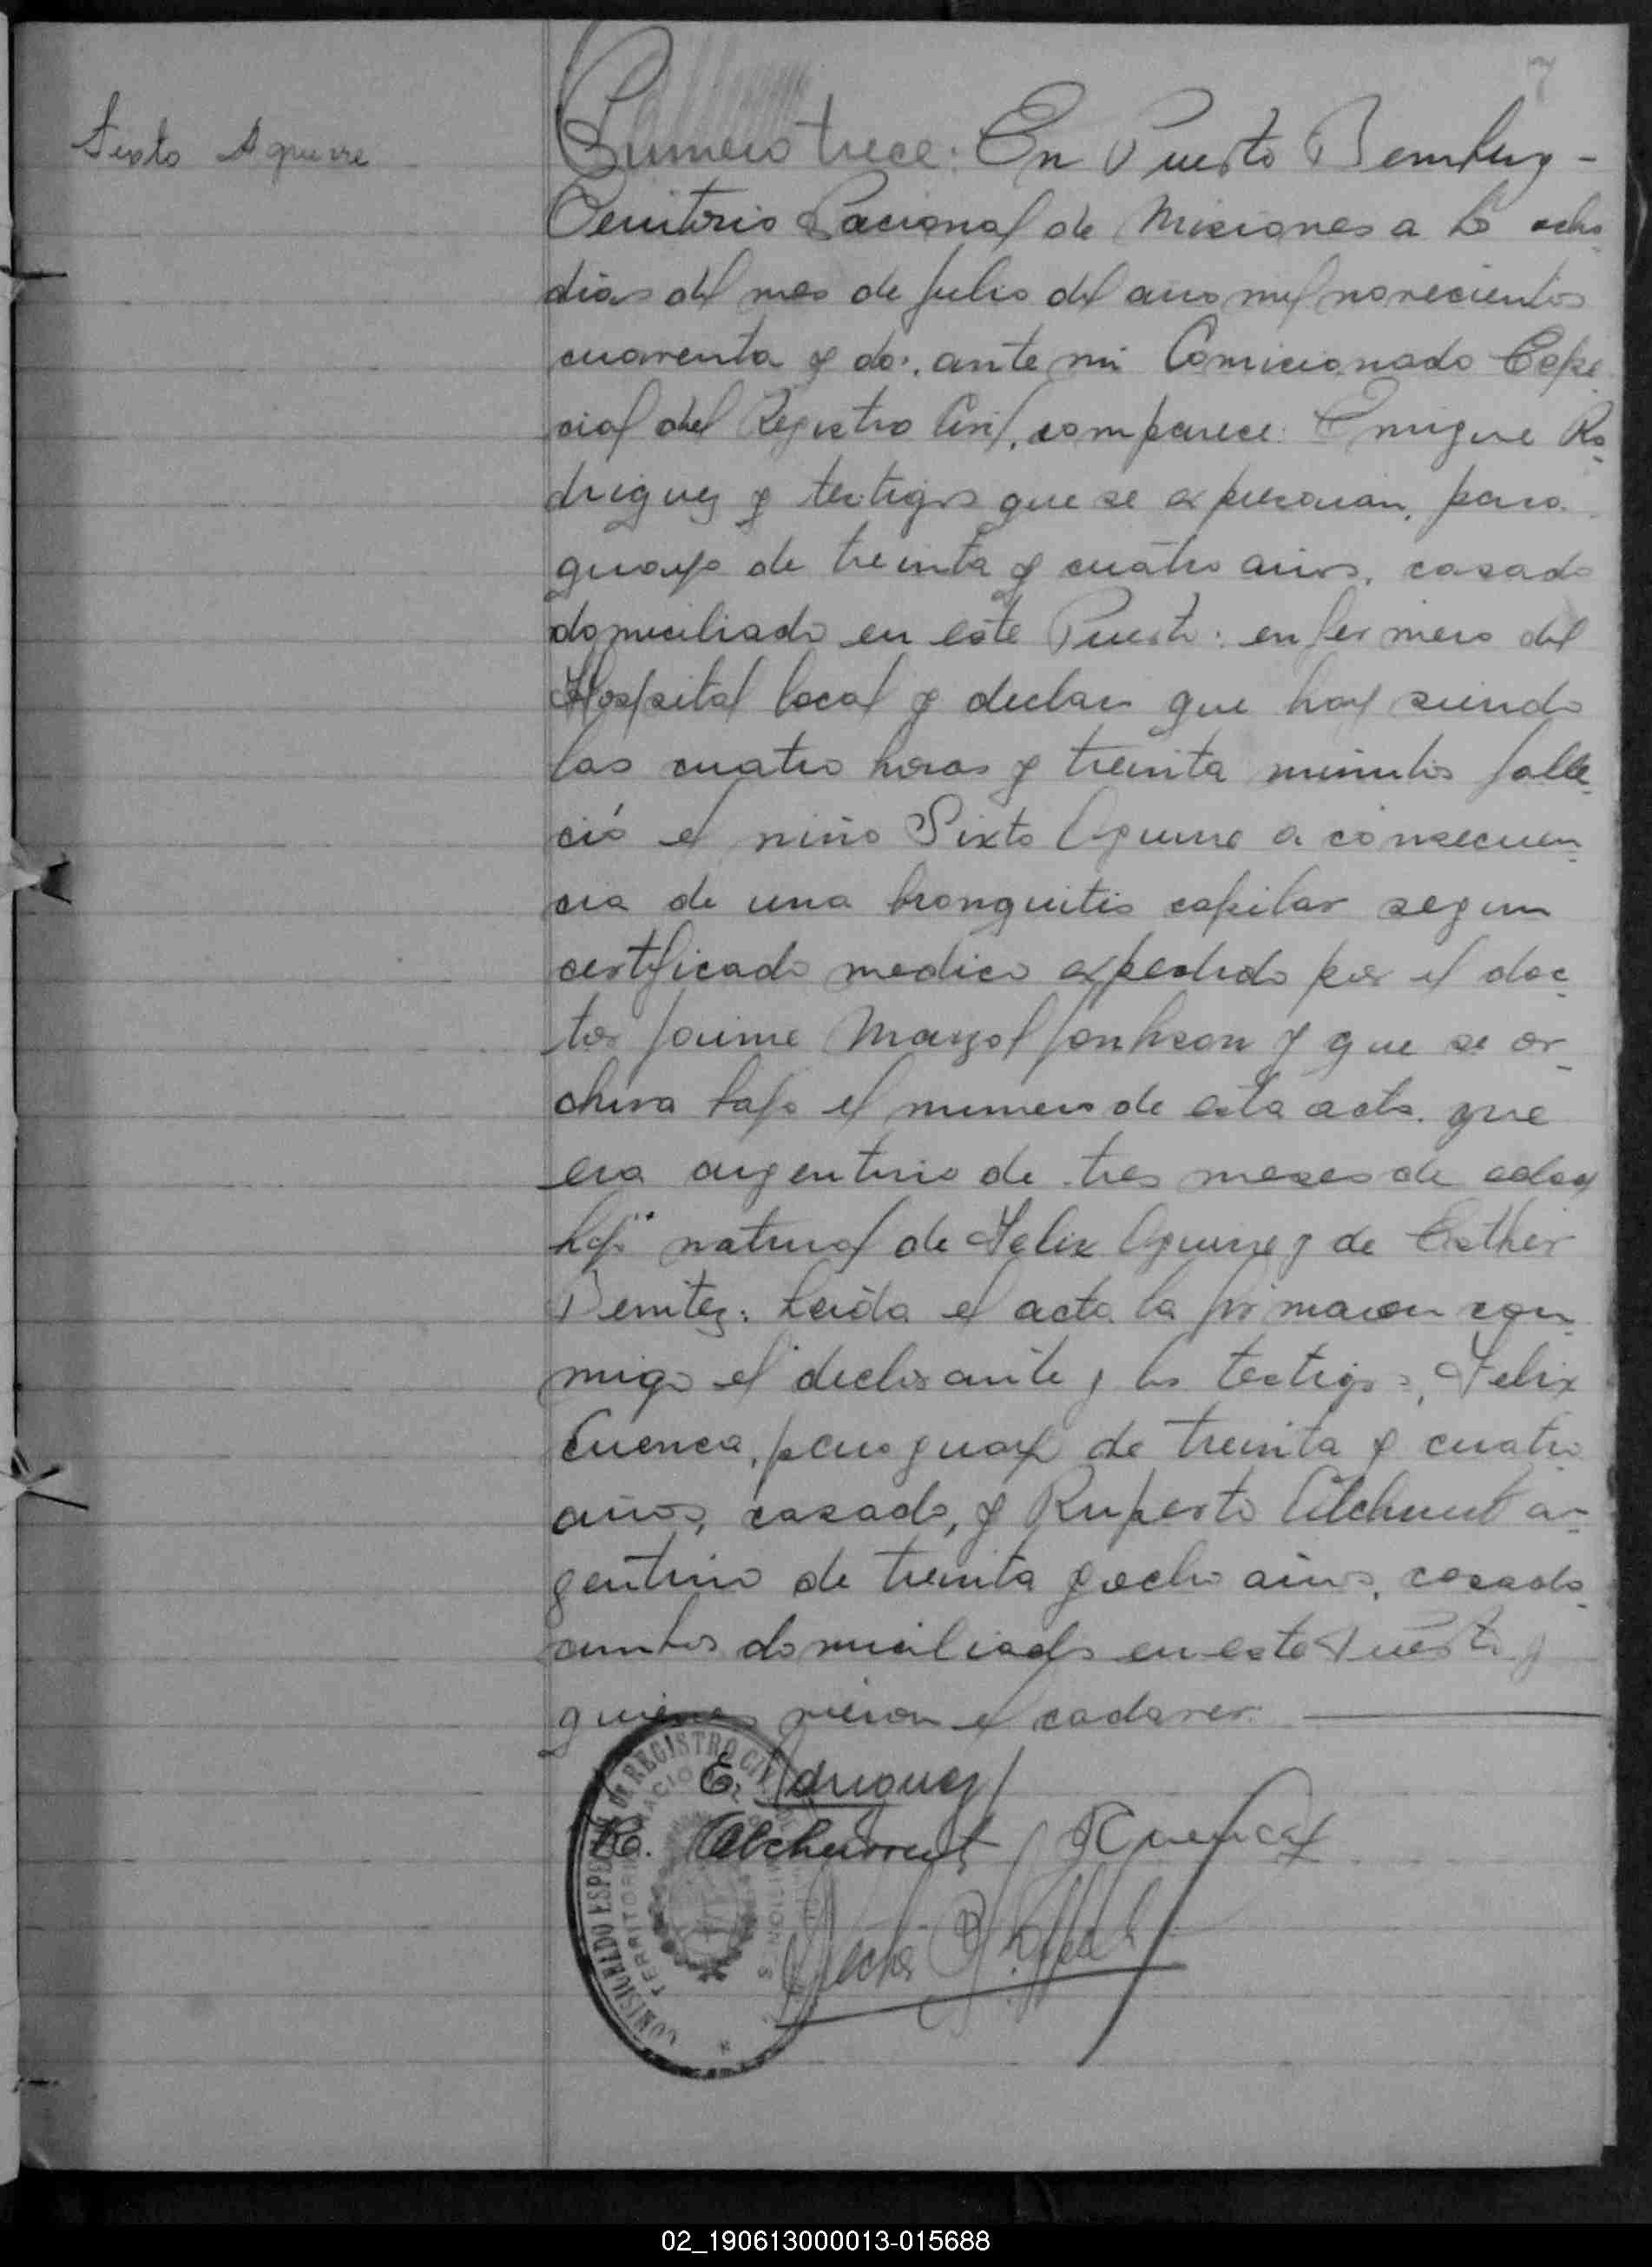 7
Sixto Aguirre
Numero trece: En Puerto Bemberg -
Territorio Nacional de Misiones a los ocho
dias del mes de Julio del año mil novecientos
cuarenta y dos, ante mi Comicionado Espe-
cial del Registro Civil, comparece: Enrique Ro-
driguez y testigos que se expresaran, para-
guayo de treinta y cuatro años, casado
domiciliado en este Puerto: enfermero del
Hospital local y declara que hoy siendo
las cuatro horas y treinta minutos falle-
ció el niño Sixto Aguirre a consecuen-
cia de una bronquitis capilar segun
certificado medico expedido por el doc-
tor Jaime Marzol Jonhson y que se ar-
chiva bajo el numero de esta acta. que
era argentino de tres meses de edad
hijo natural de Felix Aguirre y de Esther
Benitez: Leida el acta la firmaron con-
migo el declarante y los testigos, Felix
Cuenca, paraguayo de treinta y cuatro
años, casado, y Ruperto Alchurrut ar-
gentino de treinta y ocho años, casado,
ambos domiciliados en este Puerto y
quienes vieron el cadaver.
E. Rodriguez
R. Alchurrut F Cuenca
COMISIONADO ESPECIAL DE REGISTRO CIVIL
TERRITORIO NACIONAL DE MISIONES
02_190613000013-015688